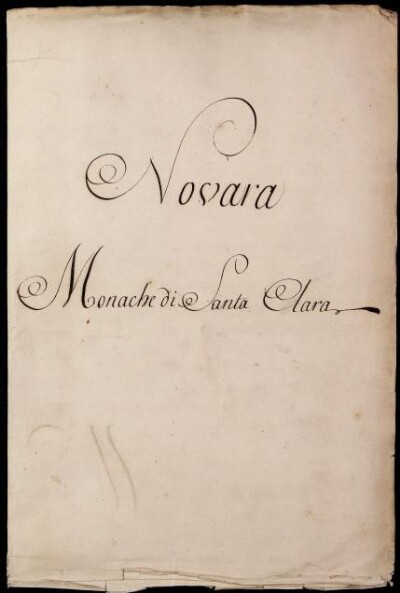 Novara
Monache di Santa Clara